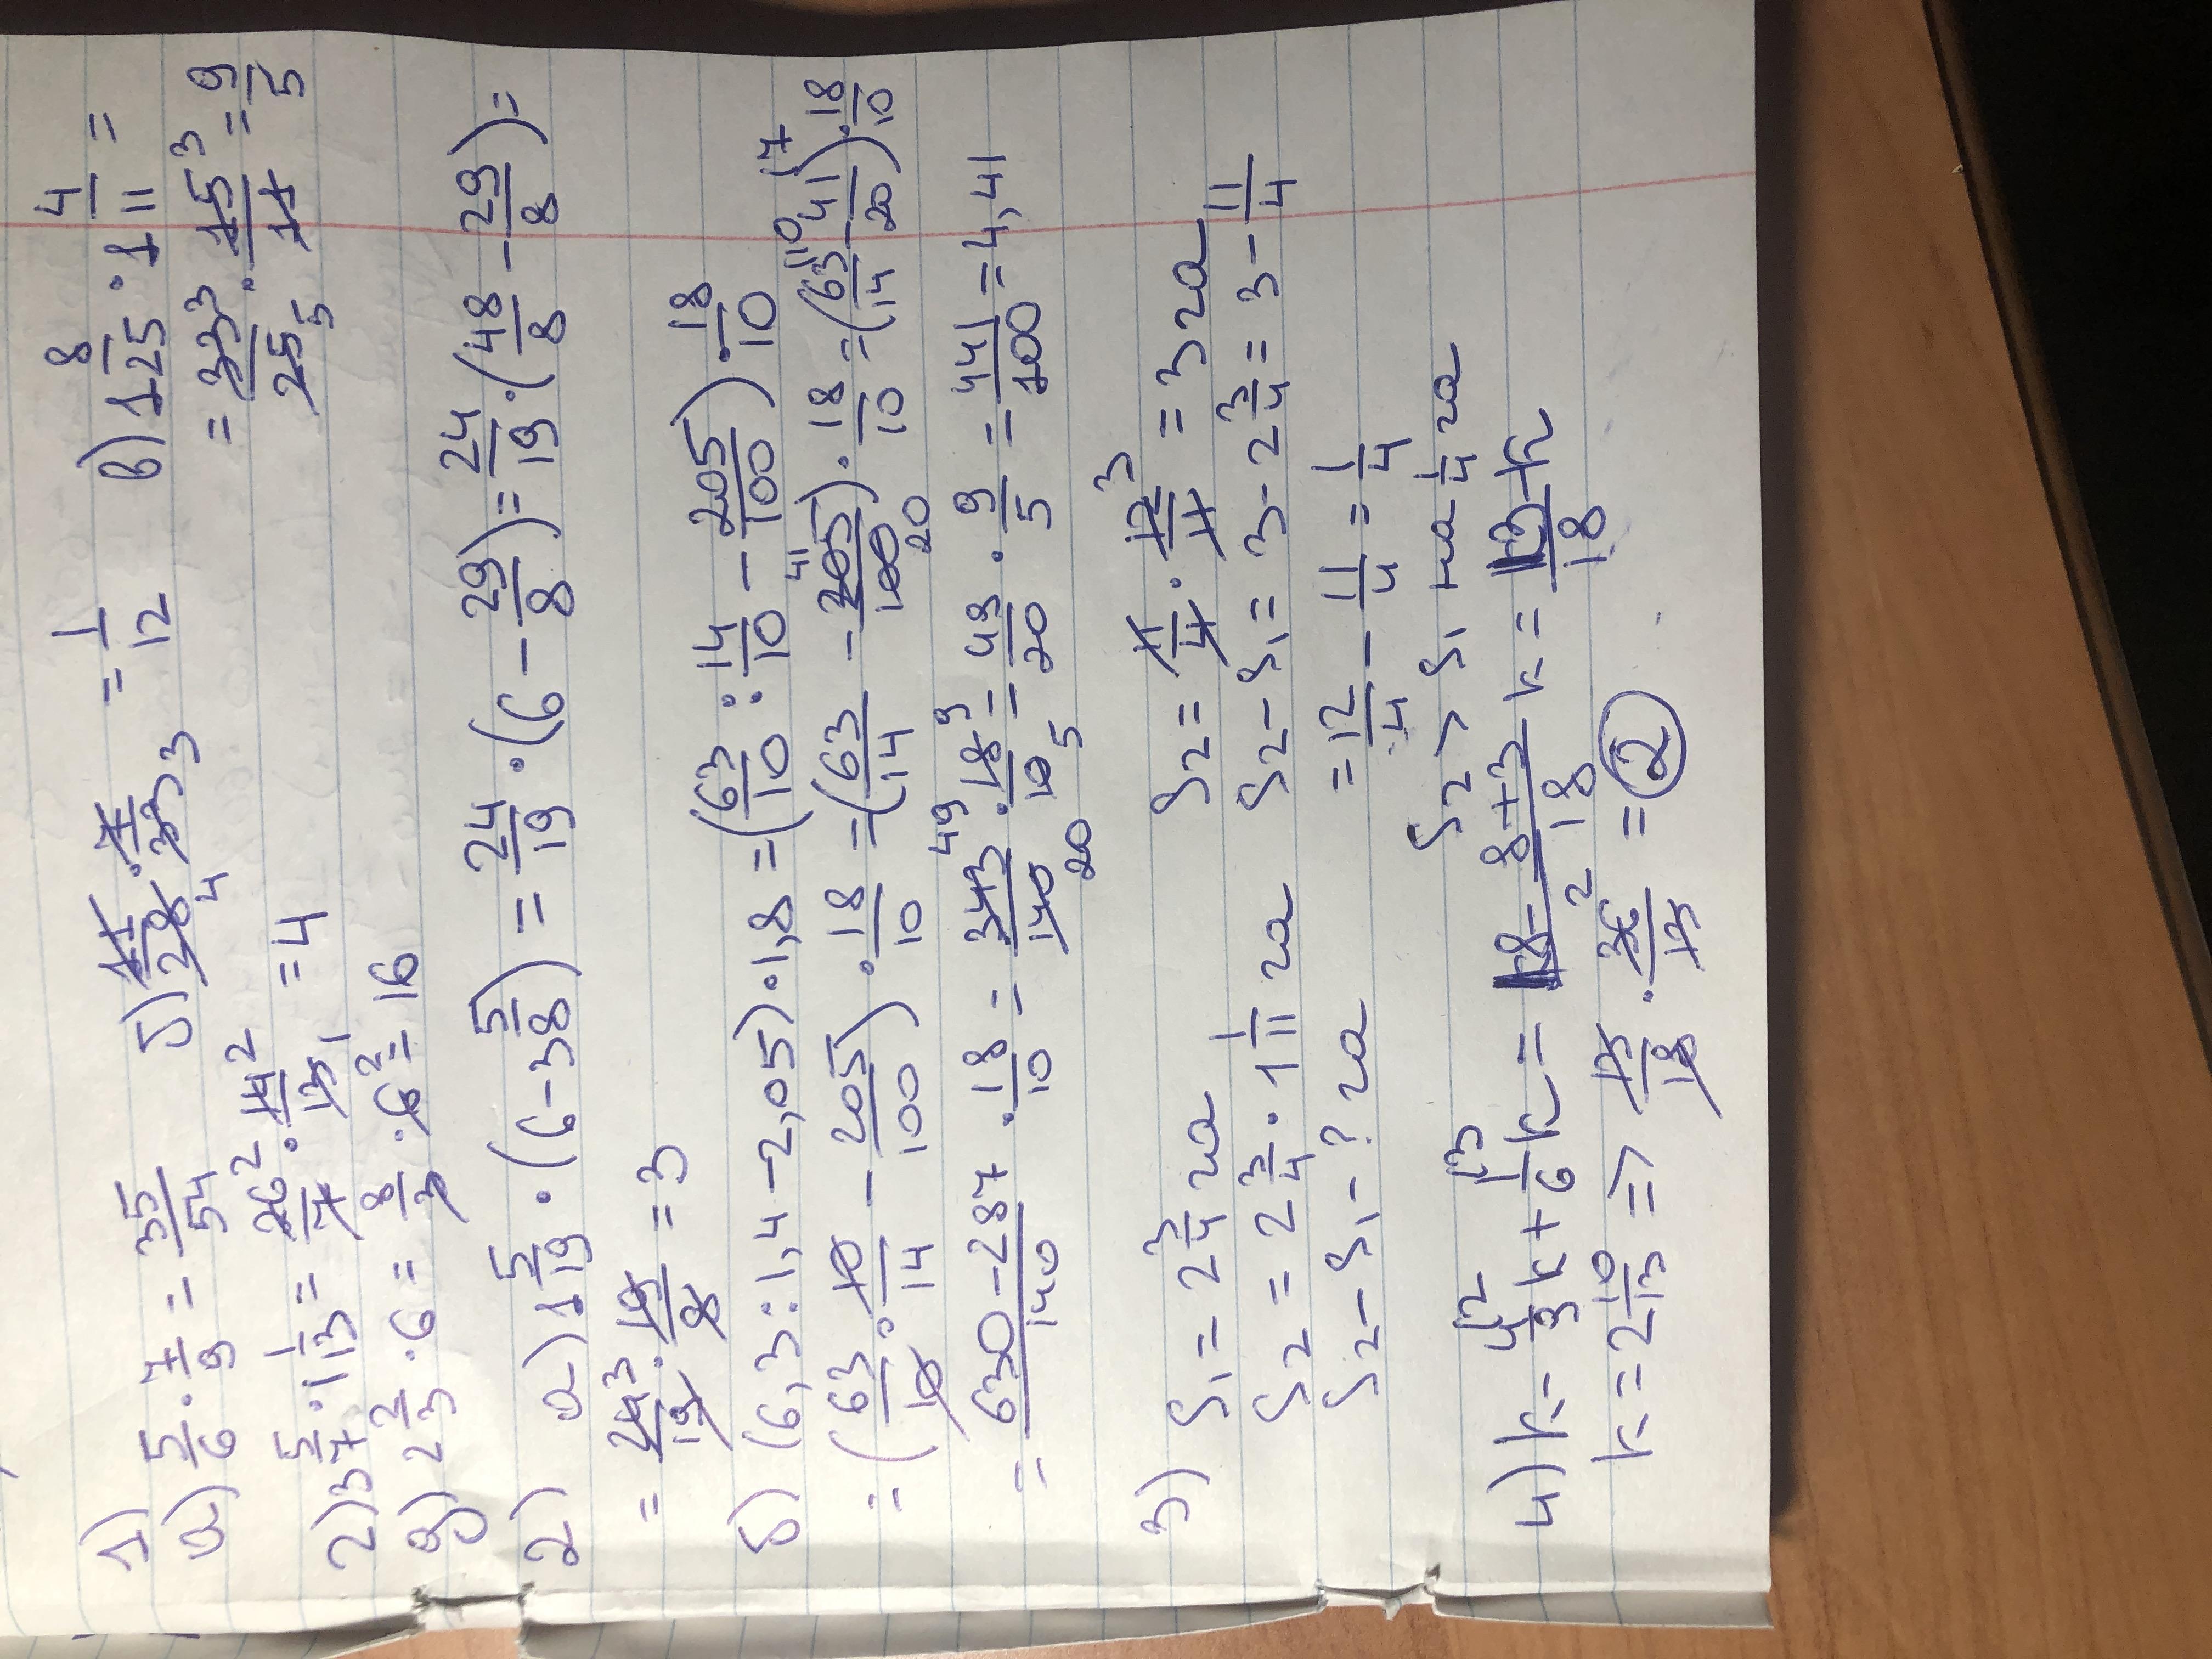 1)
а) 5/6 · 7/9 = 35/54 б) 11/28 · 7/33 = 1/12 в) 1 8/25 · 1 4/11 =
= 33/25 · 15/11 = 9/5
г) 3 5/7 · 1 1/13 = 26/7 · 14/13 = 4
д) 2 2/3 · 6 = 8/3 · 6 = 16
2) а) 1 5/19 · (6 - 3 5/8) = 24/19 · (6 - 29/8) = 24/19 · (48/8 - 29/8) =
= 24/19 · 19/8 = 3
б) (6,3 : 1,4 - 2,05) · 1,8 = (63/10 : 14/10 - 205/100) · 18/10
= (63/10 · 10/14 - 205/100) · 18/10 = (63/14 - 205/100) · 18/10 = (63/14 - 41/20) · 18/10
= 630 - 287/140 · 18/10 = 343/140 · 18/10 = 49/20 · 9/5 = 441/100 = 4,41
3) S1 = 2 3/4 га S2 = 11/4 · 12/11 = 3 га
S2 = 2 3/4 · 1 1/11 га S2 - S1 = 3 - 2 3/4 = 3 - 11/4
S2 - S1 - ? га = 12/4 - 11/4 = 1/4
S2 > S1 на 1/4 га
4) k - 4/9 k + 1/6 k = 18 - 8 + 3/18 k = 13/18 k
k = 2 10/13 => 13/18 · 36/13 = 2